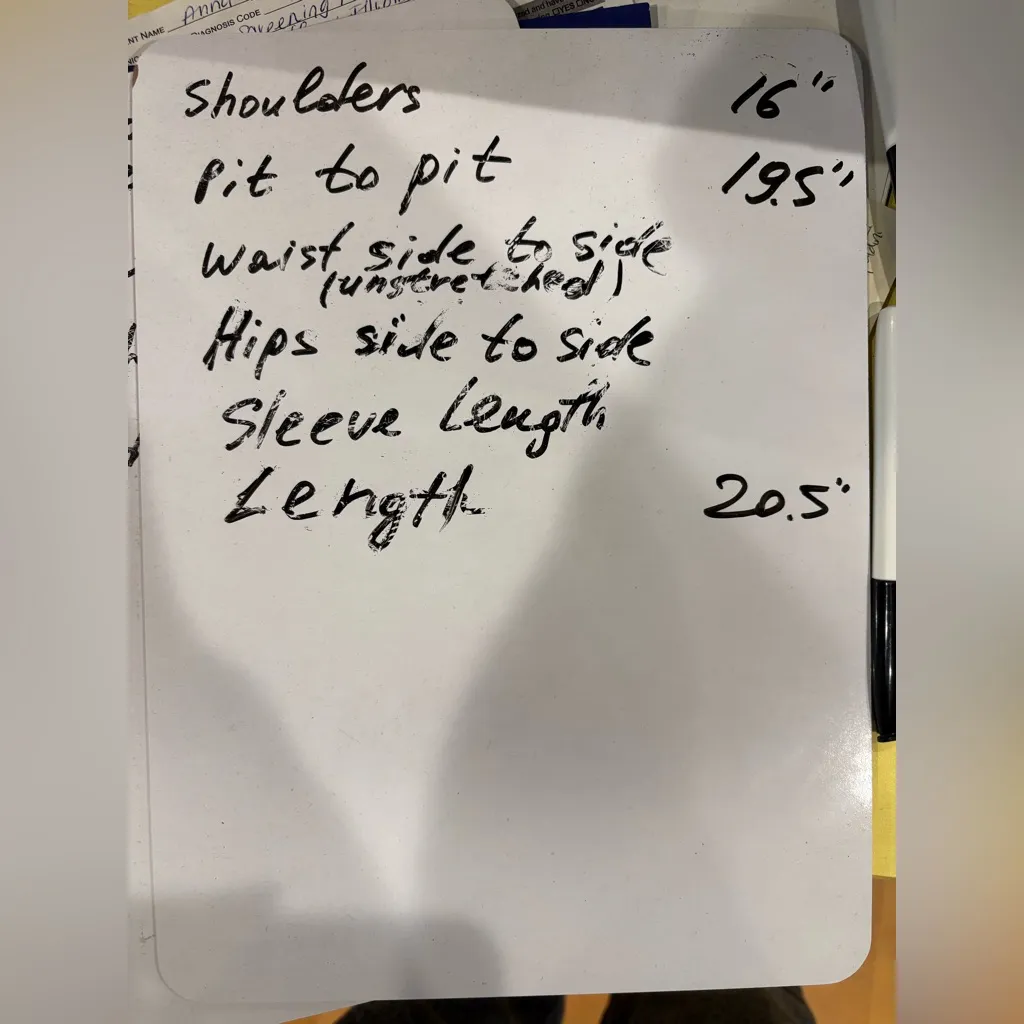 NT NAME Anna
DIAGNOSIS CODE
Shoulders 16"
Pit to pit 19.5"
Waist side to side
(unstretched)
Hips side to side
Sleeve Length
Length 20.5"